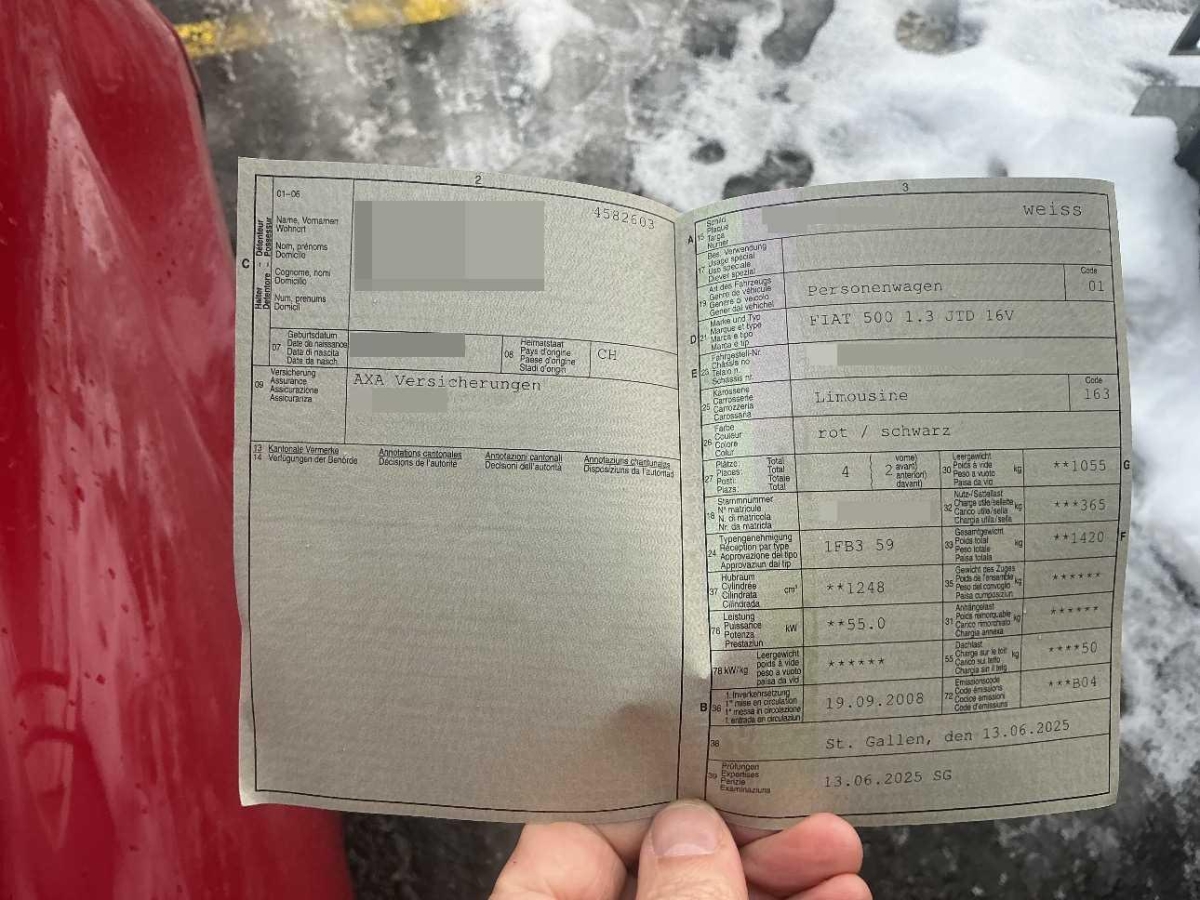 2
01-06
C
Halter - Détenteur
Detentore - Possessur
Name, Vornamen
Wohnort
Nom, prénoms
Domicile
Cognome, nomi
Domicilio
Num, prenums
Domicil
4582603
07
Geburtsdatum
Date de naissance
Data di nascita
Data da nasch.
08
Heimatstaat
Pays d'origine
Paese d'origine
Stadi d'origin
CH
09
Versicherung
Assurance
Assicurazione
Assicuranza
AXA Versicherungen
13 Kantonale Vermerke
14 Verfügungen der Behörde
Annotations cantonales
Décisions de l'autorité
Annotazioni cantonali
Decisioni dell'autorità
Annotaziuns chantunalas
Disposiziuns da l'autoritad
3
A
15
Schild
Plaque
Targa
Numer
weiss
17
Bes. Verwendung
Usage spécial
Uso speciale
Diever spezial
19
Art des Fahrzeugs
Genre de véhicule
Genere di veicolo
Gener dal vehichel
Personenwagen
Code
01
D
21
Marke und Typ
Marque et type
Marca e tipo
Marca e tip
FIAT 500 1.3 JTD 16V
E
23
Fahrgestell-Nr.
Châssis no
Telaio n.
Schassis nr.
25
Karosserie
Carrosserie
Carrozzeria
Carossaria
Limousine
Code
163
26
Farbe
Couleur
Colore
Colur
rot / schwarz
27
Plätze: Total
Places: Total
Posti: Totale
Plazs: Total
4
2
vorne)
avant)
anteriori)
davant)
30
Leergewicht
Poids à vide
Peso a vuoto
Paisa da vid
kg
**1055
G
18
Stammnummer
N° matricule
N. di matricola
Nr. da matricla
32
Nutz-/Sattellast
Charge utile/sellette
Carico utile/sella
Chargia utila/sella
kg
***365
24
Typengenehmigung
Réception par type
Approvazione del tipo
Approvaziun dal tip
1FB3 59
33
Gesamtgewicht
Poids total
Peso totale
Paisa totala
kg
**1420
F
37
Hubraum
Cylindrée
Cilindrata
Cilindrada
cm³
**1248
35
Gewicht des Zuges
Poids de l'ensemble
Peso del convoglio
Paisa cumposiziun
kg
******
76
Leistung
Puissance
Potenza
Prestaziun
kW
**55.0
31
Anhängelast
Poids remorquable
Carico rimorchiato
Chargia annexa
kg
******
78
kW/kg
Leergewicht
poids à vide
peso a vuoto
paisa da vid
******
55
Dachlast
Charge sur le toit
Carico sul tetto
Chargia sin il tetg
kg
****50
B
36
1. Inverkehrsetzung
1re mise en circulation
1a messa in circolazione
1. entrada en circulaziun
19.09.2008
72
Emissionscode
Code émissions
Codice emissioni
Code d'emissiuns
***B04
38
St. Gallen, den 13.06.2025
39
Prüfungen
Expertises
Perizie
Examinaziuns
13.06.2025 SG